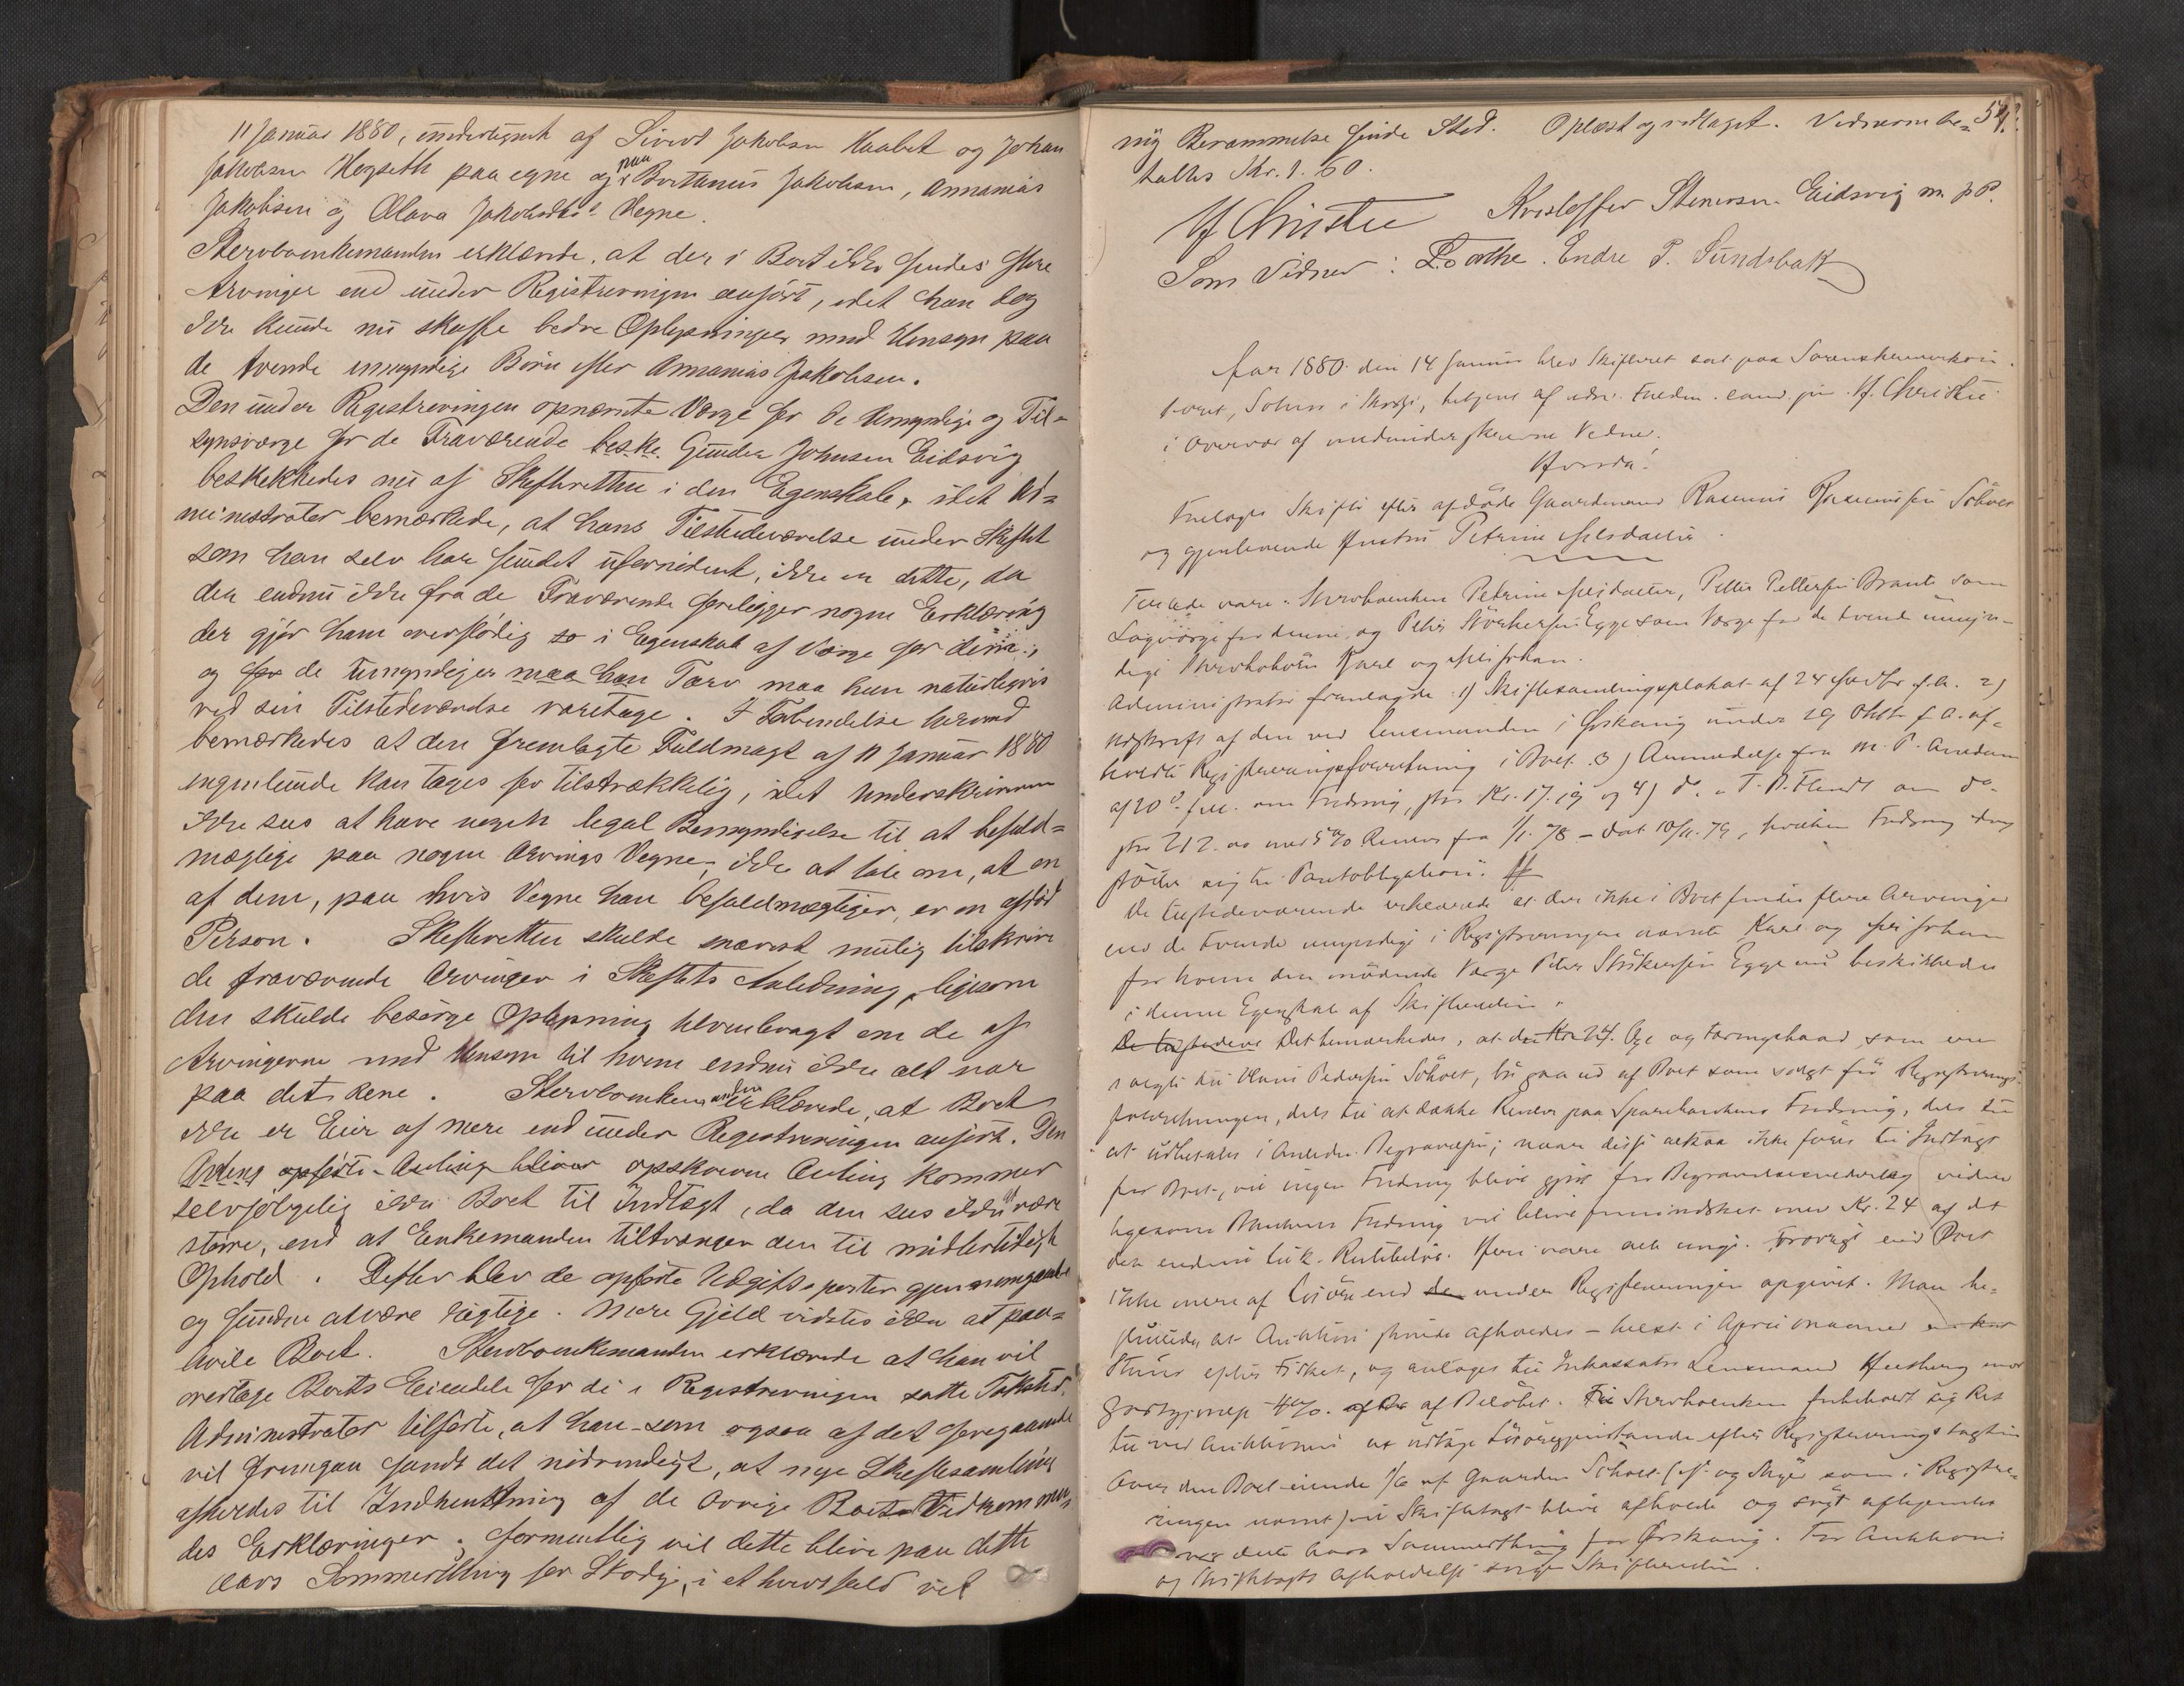 11 Januar 1880, underteignet af Sivert Jakobsen Haabet og Johan
Jakobsen Hegseth paa egne og paa Bertanus Jakobsen, Annanias
Jakobsen og Olava Jakobsdatters Vegne.
Stervboenkemanden erklærede, at der i Boet ikke findes flere
Arvinger end under Registreringen anført, idet han dog
ikke kunde nu skaffe bedre Oplysninger med Hensyn paa
de tvende umyndige Børn efter Annanias Jakobsen.
Den under Registreringen opnævnte Værge for de Umyndige og Til-
synsværge for de Fraværende beske. Gunder Johnsen Eidsvig
beskikkedes nu af Skifteretten i den Egenskab, idet Ad-
ministrator bemærkede, at hans Tilstedeværelse under Skiftet
som han selv har fundet ufornødent, ikke er dette, da
der endnu ikke fra de Fraværende foreligger nogen Erklæring
der gjør ham overflødig i Egenskab af Værge for disse,
og for de Umyndiges maa han Tarv maa han naturligvis
ved sin Tilstedeværelse varetage. I Forbindelse hermed
bemærkedes at den fremlagte Fuldmagt af 11 Januar 1880
ingenlunde kan tages for tilstrækkelig, idet Underskriverne
ikke sees at have nogen legal Bemyndigelse til at befuld-
mægtige paa nogen Arvings Vegne, ikke at tale om, at en
af dem, paa hvis Vegne han befuldmægtiger, er en afdød
Person. Skifteretten skulde snarest mulig tilskrive
de fraværende Arvinger i Skiftets Anledning, ligesom
den skulde besørge Oplysning tilveiebragt om de af
Arvingerne med Hensyn til hvem endnu ikke alt var
paa det Rene. Stervboenkemanden erklærede, at Boet
ikke er Eier af mere end under Registreringen anført. Den
Avling opførte Avling bliver opskrevne Avling kommer
selvfølgelig ikke Boet til Indtægt, da den sees ikke at være
større, end at Enkemanden tiltrænger den til midlertidigt
Ophold. Derefter blev de opførte Udgiftsposter gjennemgaaede
og funden at være rigtige. Mere Gjeld vidstes ikke at paa-
hvile Boet. Stervboenkemanden erklærede at han vil
overtage Boets Eiendele for de i Registreringen satte Takster.
Administrator tilførte, at han som ogsaa af det foregaaende
vil fremgaa fandt det nødvendigt, at nye Skiftesamling
afholdes til Indhentning af de øvrige Boets Vedkommen-
des Erklæringer; formentlig vil dette blive paa dette
Aars Sommerthing for Skodje, i ethvertfald vil
ny Berammelse finde Sted. Oplæst og vedtaget. Vidnerne be-
taltes Kr. 1.60.
H Christie Kristoffer Stenersen Eidsvig m. p P.
Som Vidner: Endre P. Sundsbak
Aar 1880 den 14 Januar blev Skifteret sat paa Sorenskriverkon-
toret, Solnør i Skodje, betjent af edsv. Fuldm. cand. jur. H. Christie
i Overvær af medunderskrevne Vidner.
Hvorda!
Foretoges Skifte efter afdøde Gaardmand Rasmus Rasmussen Søholt
og gjenlevende Hustru Petrine Nilsdatter.
Tilstede vare: Stervboenken Petrine Nilsdatter, Petter Pettersen Brante som
Lagværge for denne, og Peter Størkersen Egge som Værge for de tvende umyn-
dige Stervbobørn Karl og
Administrator fremlagde 1) Skiftesamlingsplakat af 24 2)
Udskrift af den ved Lensmanden i Ørskoug under 29 Oktbr f. A. af-
holdte Registreringsforretning i Boet. 3) Anmeldelse fra M. P.
af 20de om Fordring, stor Kr. 17. 19 og 4) do. T. B. Flendt om do.
stor 212. 00 med 5% Renter fra 1/1. 78 – dat 10/11. 79, hvilken Fordring
støtter sig til Pantobligation.
De tilstedeværende erklærede at der ikke i Boet findes flere Arvinger
end de tvende umyndige i Registreringen nævnte Karl og
for hvem den mødende Værge Peter Størkersen Egge nu beskikkedes
i denne Egenskab af Skifteretten.
De tilstedevæ Det bemærkedes, at de Kr 24. som ere
solgte til Hans Pedersen Søholt, bør gaa ud af Boet som solgt før Registrerings-
forretningen, dels til at dække Renter paa Sparebankens Fordring, dels til
at udbetales i Anledn. Begravelsen; naar disse altsaa ikke føres til Indtægt
for Boet, vil ingen Fordring blive gjort for Begravelsesomkostning videre
ligesom Bankens Fordring vil blive formindsket med Kr. 24 af det
der endnu Forøvrigt eied Boet
ikke mere af Løsøre end de under Registreringen opgivet. Man be-
sluttede, at Auktion skulde afholdes – helst i April Maaned
straks efter Fisket, og antoges til Inkassator Lensmand med
Godtgjørelse 4% af Beløbet. Stervboenken forbeholdt sig Ret
til ved Auktionen at udtage Løsøregjenstande efter Registreringstaxten
Over den Boet eiende 1/6 af Gaarden Søholt som i Registre-
ringen nævnt vil Skiftetaxt blive afholdt og søgt afhjemlet
dette Aars Sommerthing for Ørskoug. For Auktions
og Skiftetaxts Afholdelse sørger Skifteretten.